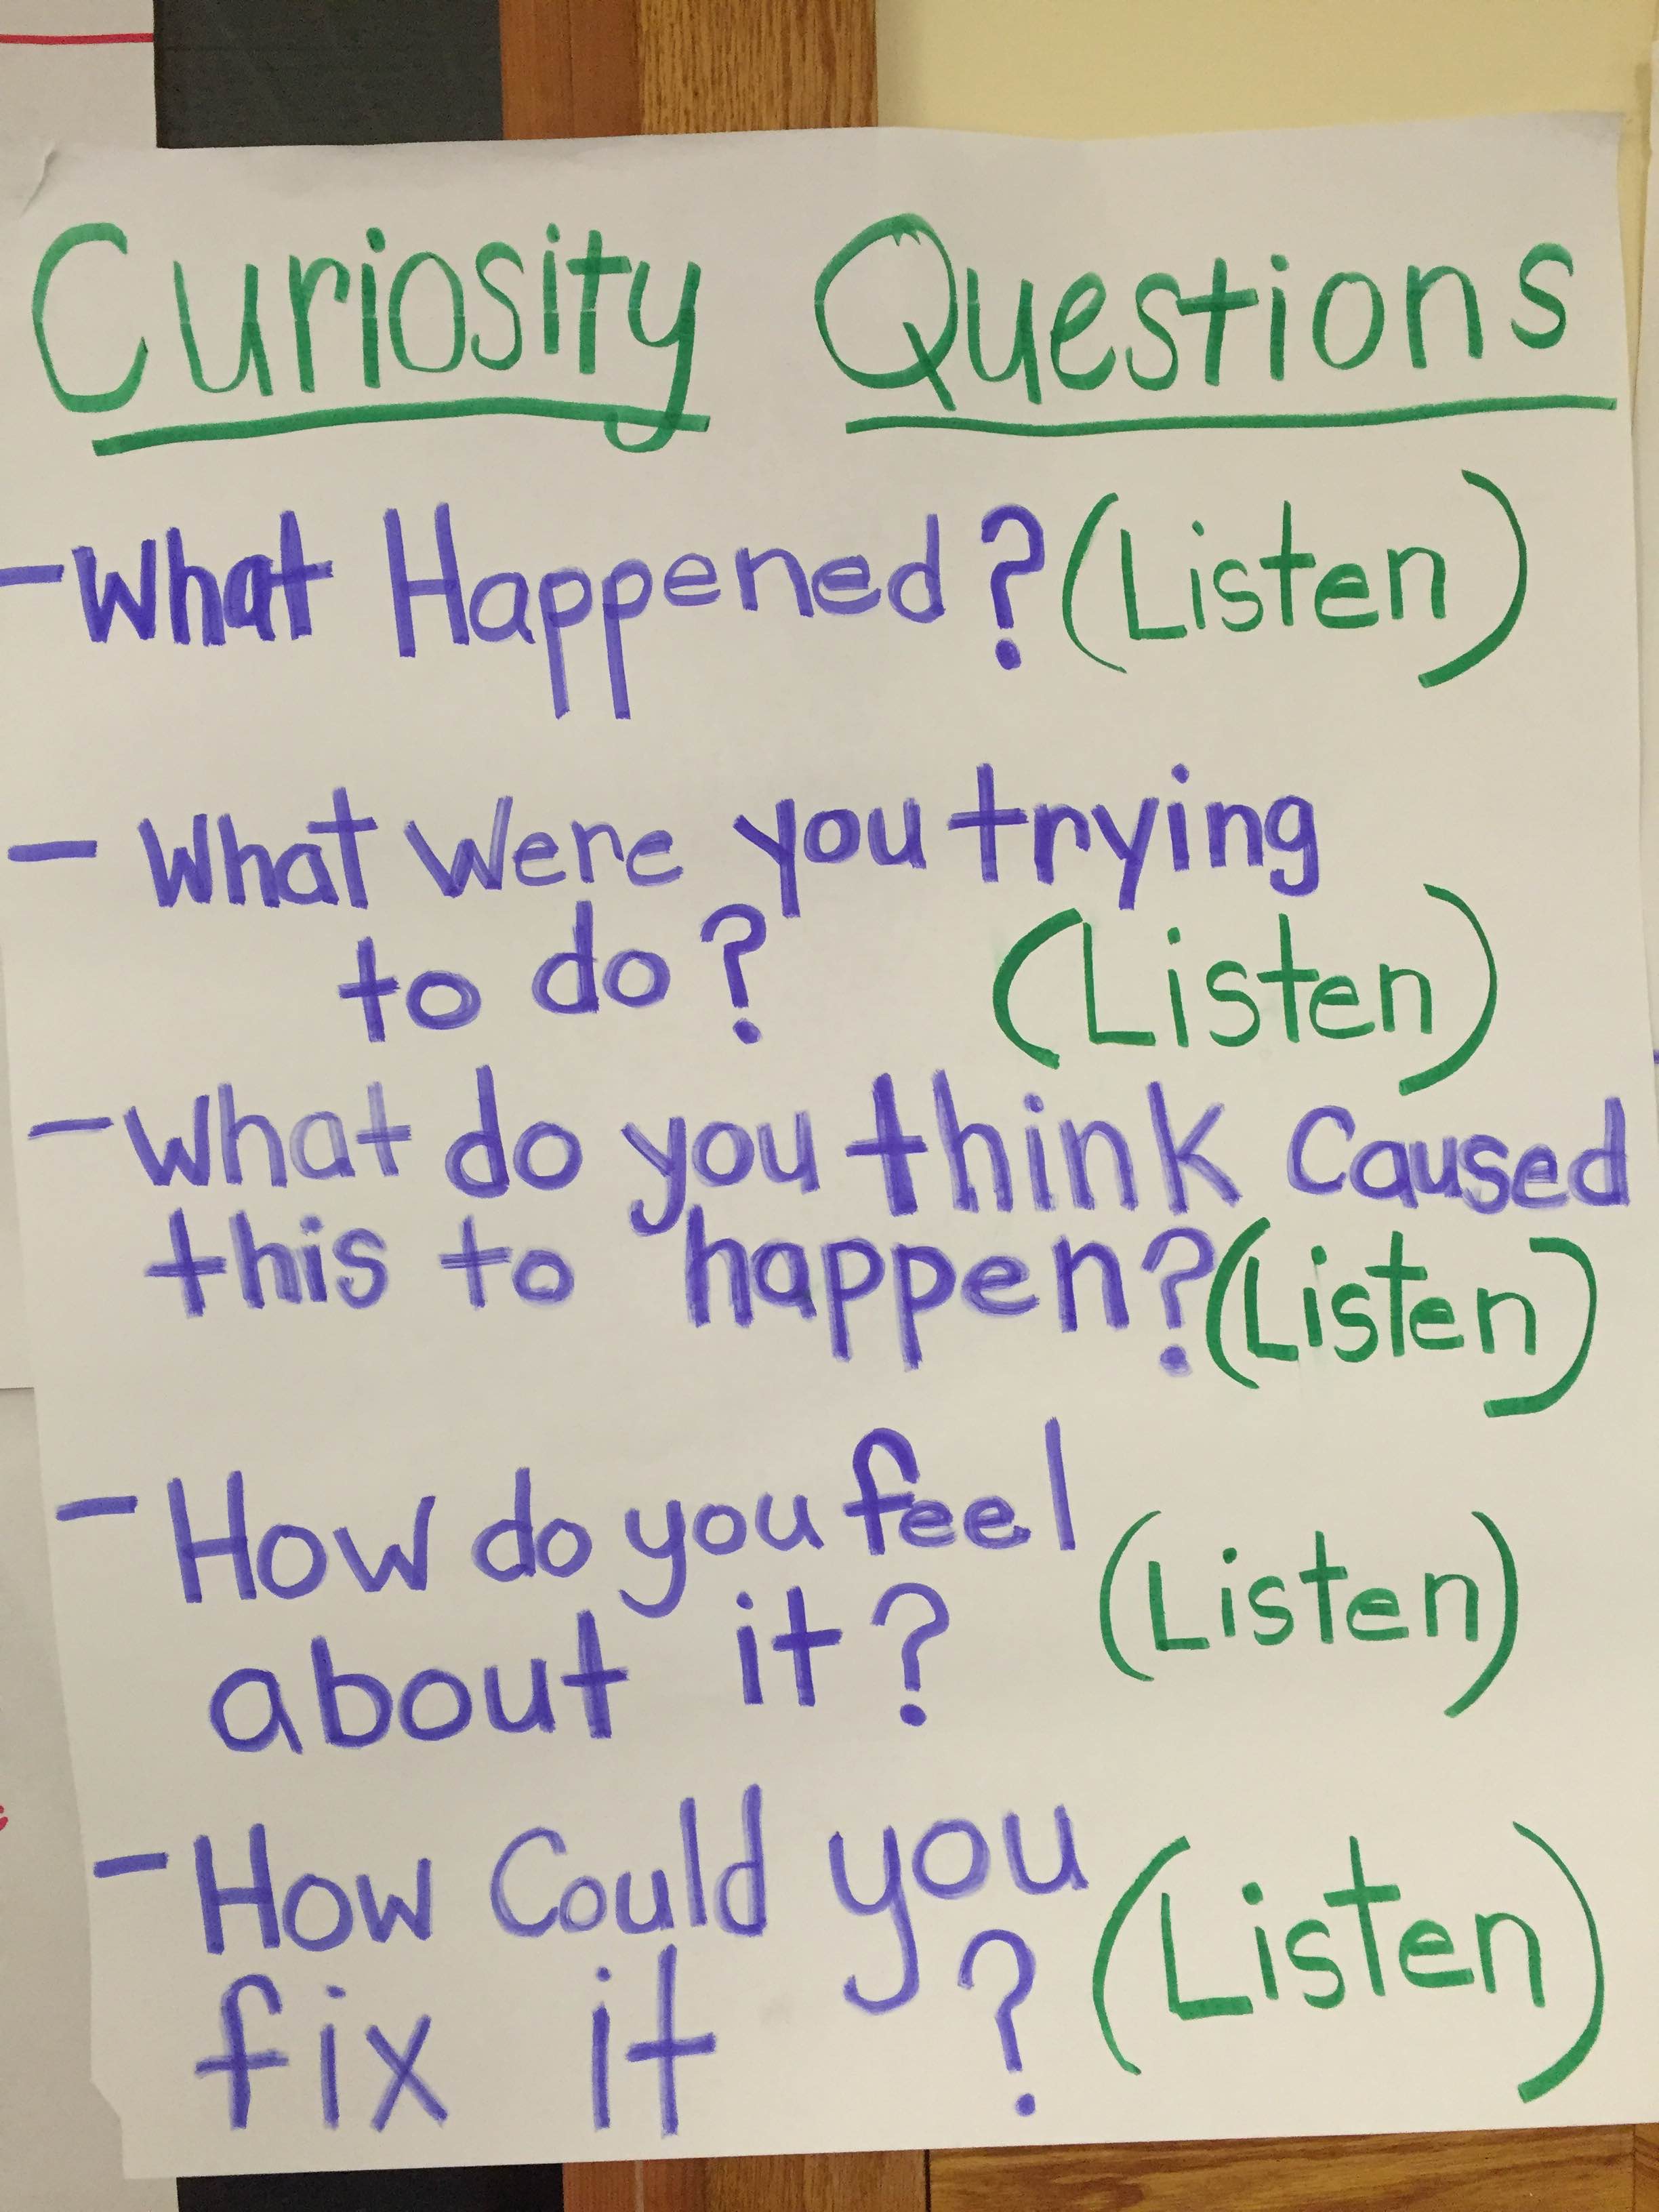 Curiosity Questions
- What Happened? (Listen)
- What were you trying
to do? (Listen)
- What do you think caused
this to happen? (Listen)
- How do you feel
about it? (Listen)
- How Could you
fix it? (Listen)